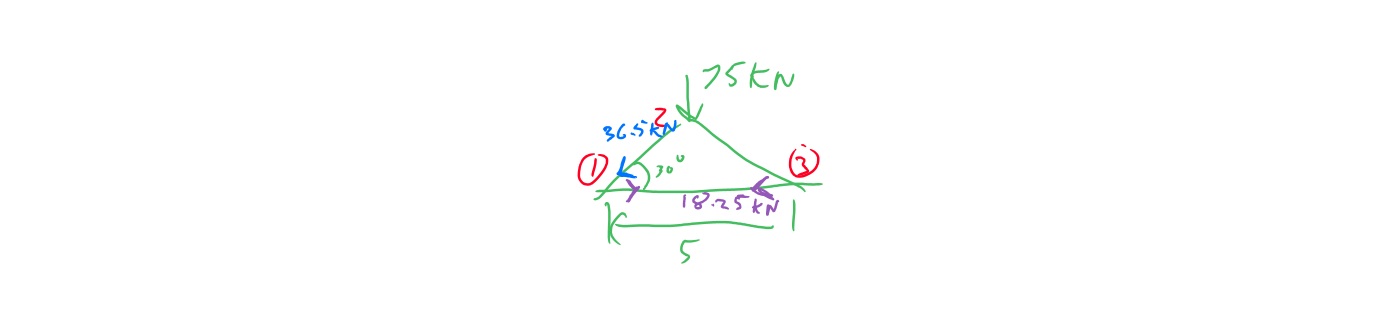 75KN
2
36.5KN
①
30°
③
18.25KN
5